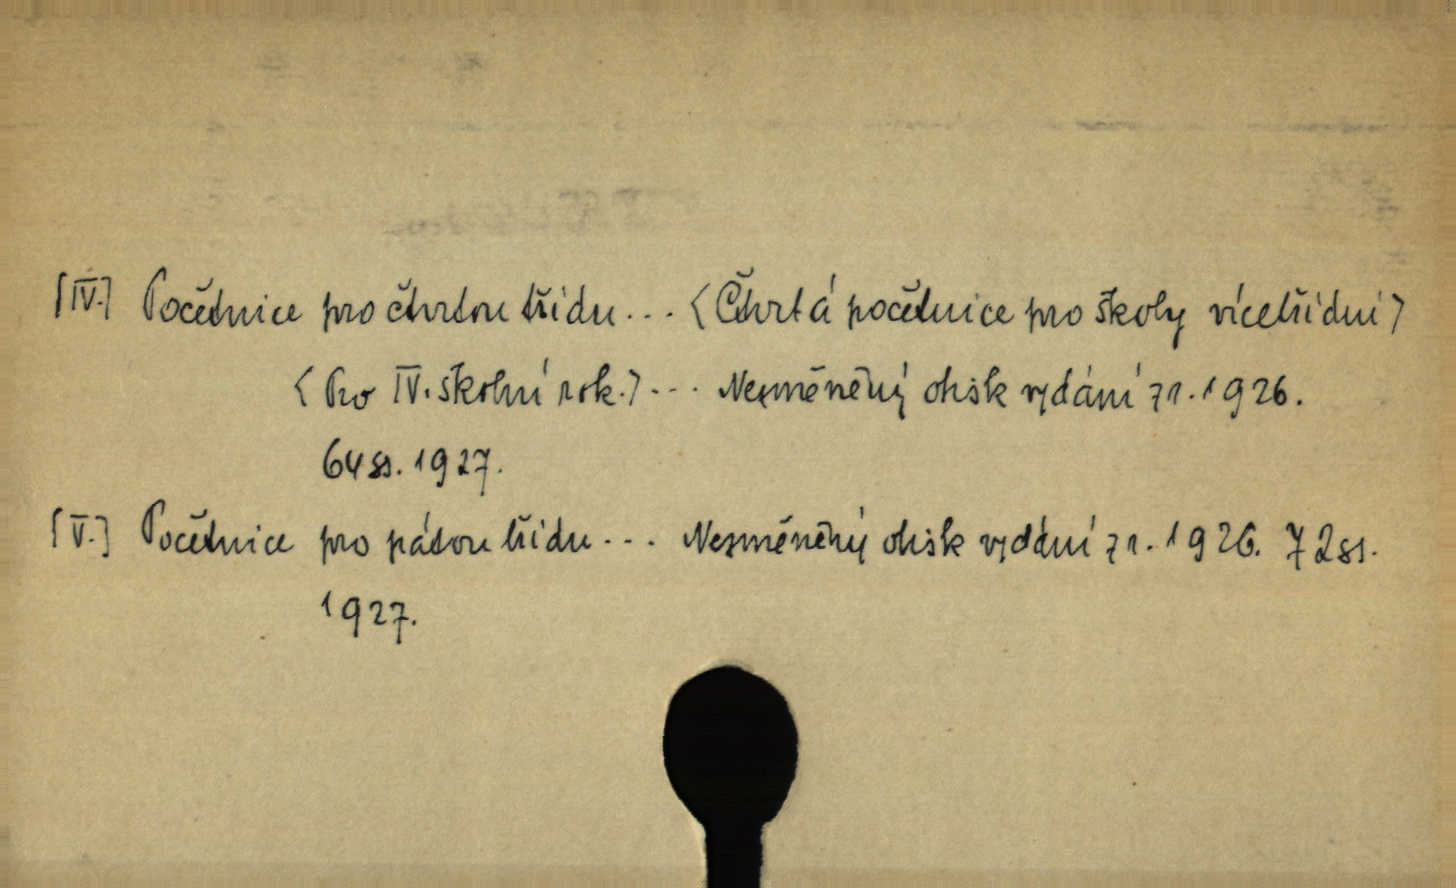 [IV.] Početnice pro čtvrtou třídu... <Čtvrtá početnice pro školy vícetřídní>
<Pro IV. školní rok.>... Nezměněný otisk vydání z r. 1926.
64 ss. 1927.
[V.] Početnice pro pátou třídu... Nezměněný otisk vydání z r. 1926. 72 ss.
1927.